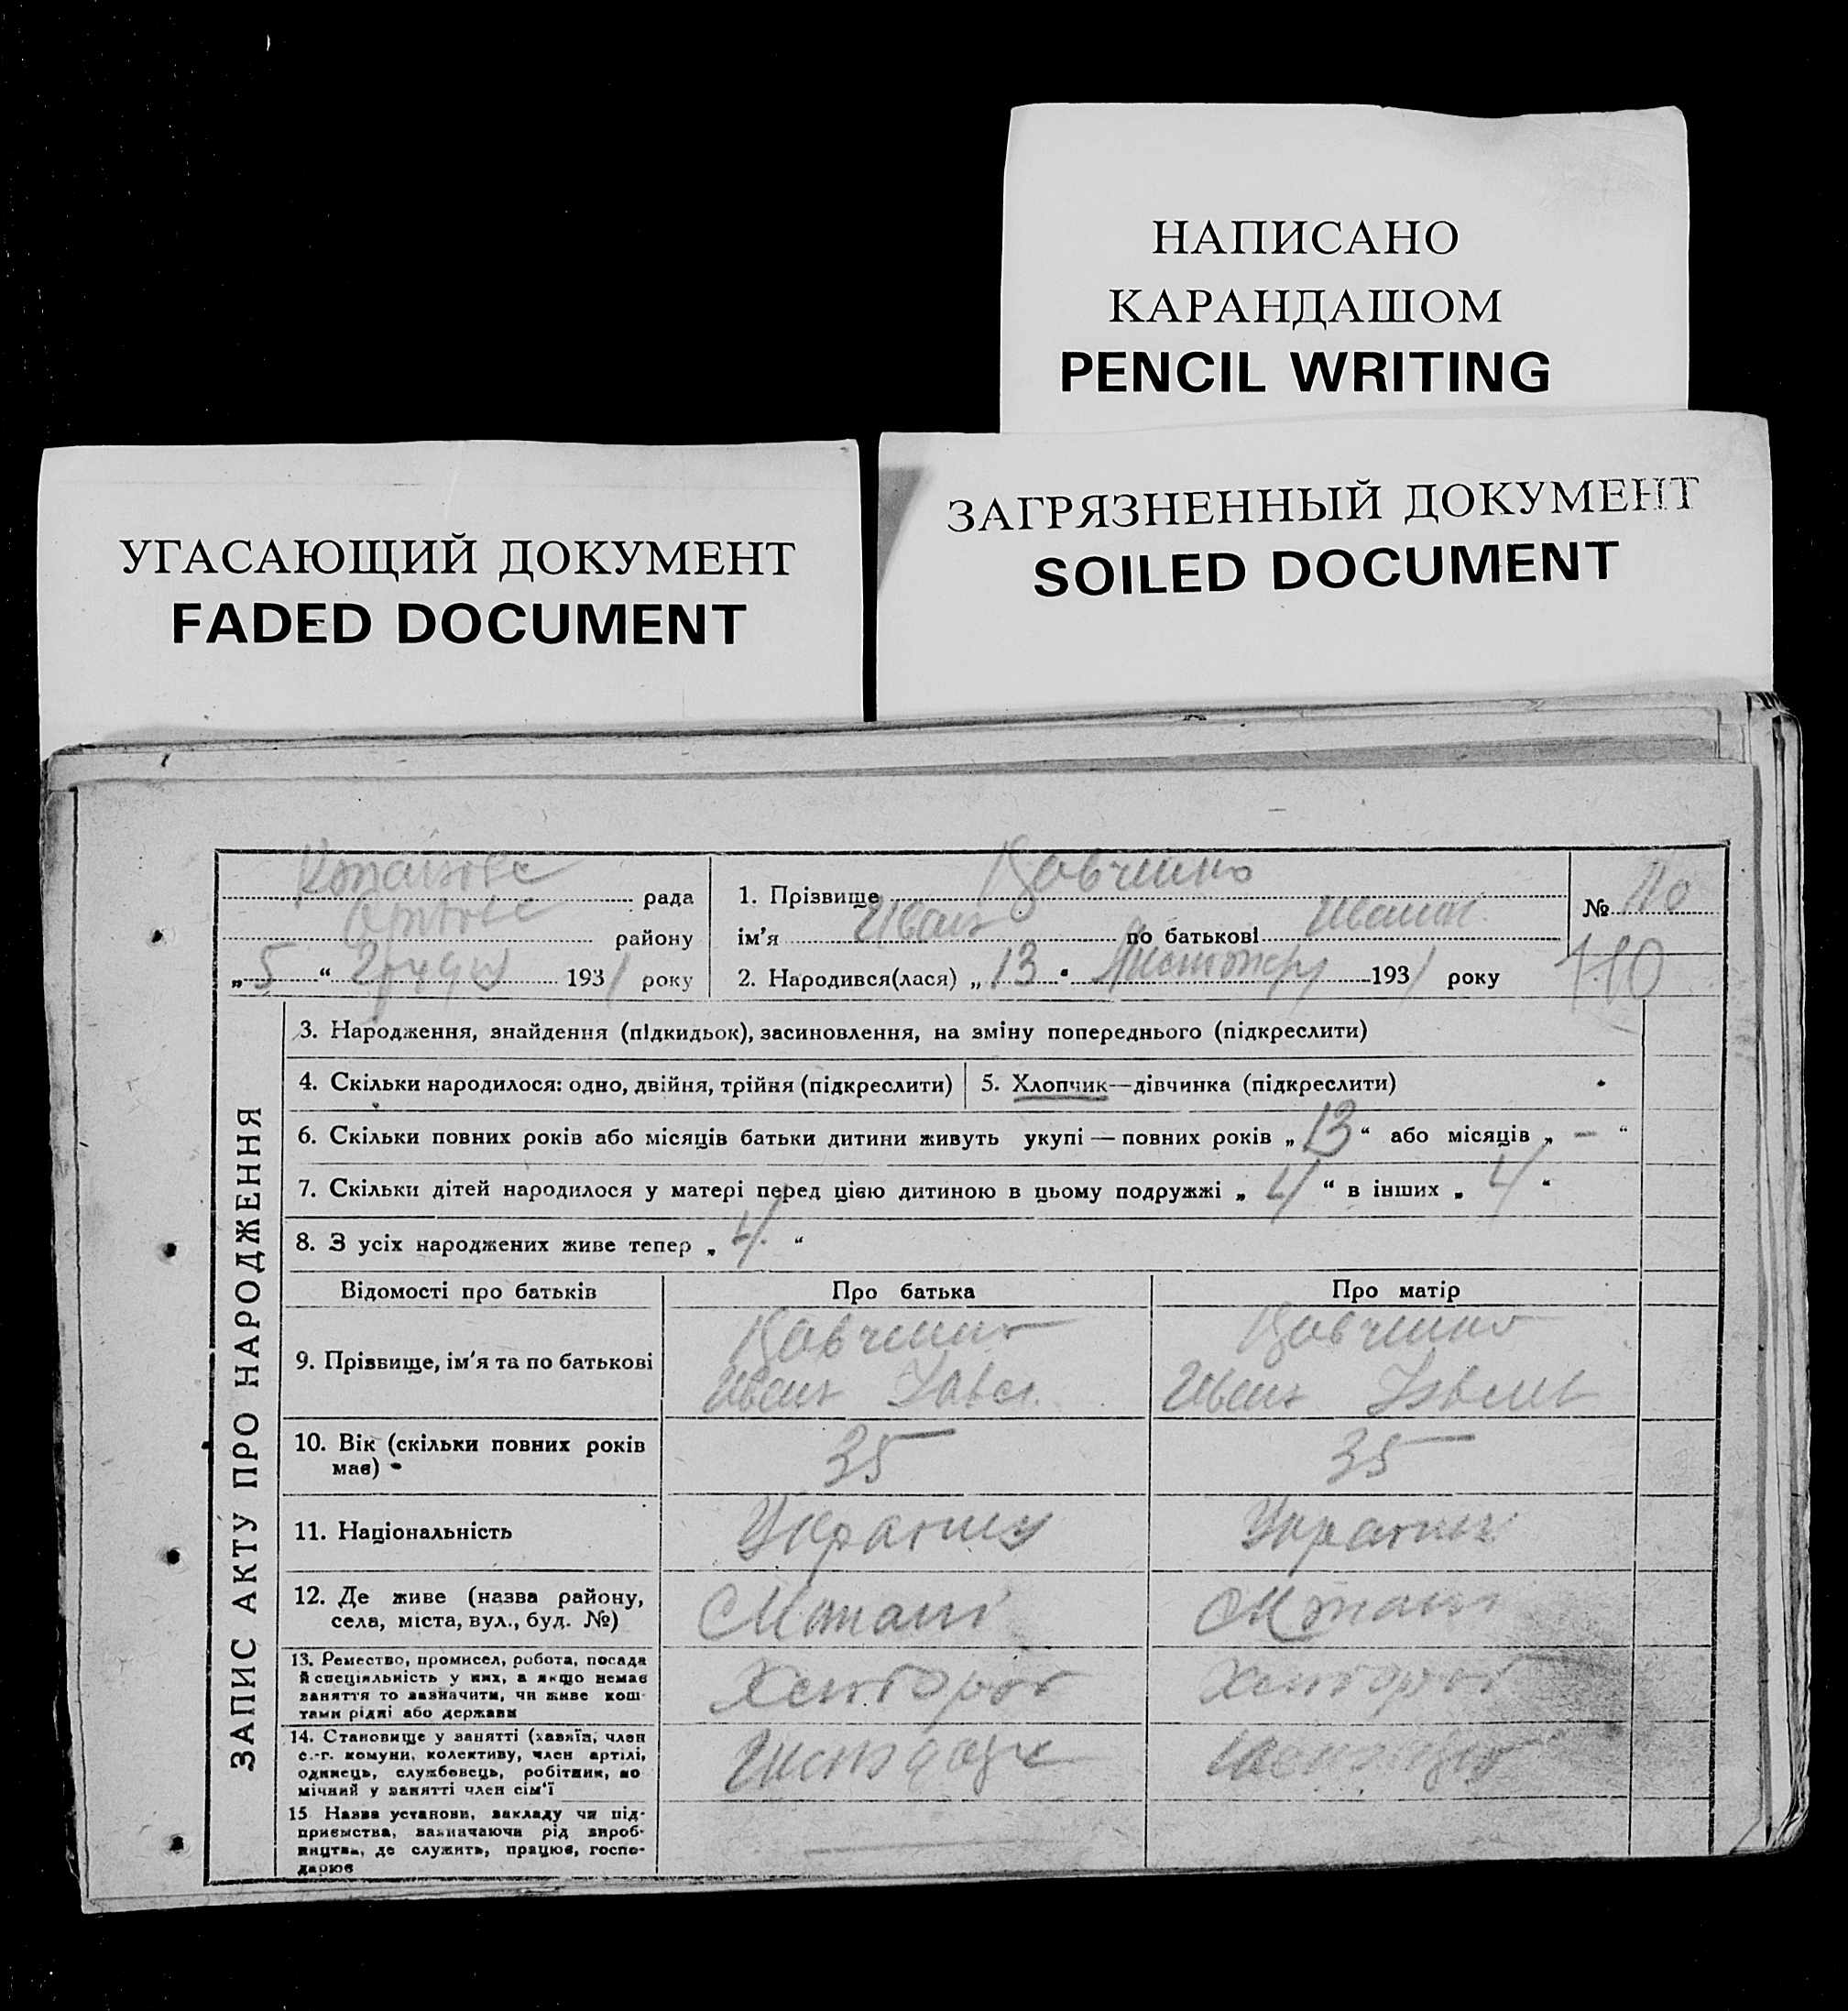 НАПИСАНО
КАРАНДАШОМ
PENCIL WRITING
УГАСАЮЩИЙ ДОКУМЕНТ
FADED DOCUMENT
ЗАГРЯЗНЕННЫЙ ДОКУМЕНТ
SOILED DOCUMENT
рада
району
„ 5 “ грудня 1931 року
1. Прізвище
ім'я Иван по батькові
2. Народився(лася) „ 13 “ 1931 року
№ 110
110
ЗАПИС АКТУ ПРО НАРОДЖЕННЯ
3. Народження, знайдення (підкидьок), засиновлення, на зміну попереднього (підкреслити)
4. Скільки народилося: одно, двійня, трійня (підкреслити)
5. Хлопчик—дівчинка (підкреслити)
6. Скільки повних років або місяців батьки дитини живуть укупі — повних років „ 13 “ або місяців „ — “
7. Скільки дітей народилося у матері перед цією дитиною в цьому подружжі „ 4 “ в інших „ 4 “
8. З усіх народжених живе тепер „ 4 “
Відомості про батьків
Про батька
Про матір
9. Прізвище, ім'я та по батькові
Иван
Иван
10. Вік (скільки повних років
має)
35
35
11. Національність
12. Де живе (назва району,
села, міста, вул., буд. №)
13. Ремество, промисел, робота, посада
й спеціяльність у них, а якщо немає
заняття то зазначити, чи живе кош-
тами рідні або держави
14. Становище у занятті (хазяїн, член
с.-г. комуни, колективу, член артілі,
одинець, службовець, робітник, по
мічний у занятті член сім'ї
15 Назва установи, закладу чи під-
приємства, зазначаючи рід вироб-
ництва, де служить, працює, госпо-
дарює